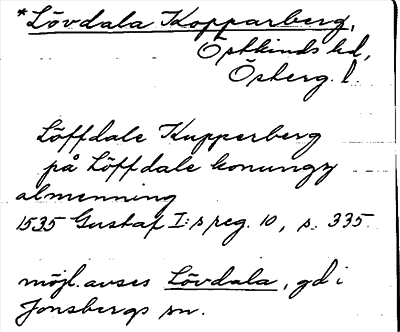 *Lövdala Kopparberg,
Östkinds hd,
Österg. l.
Löffdale Kupperberg
på Löffdale konungz
almenning
1535 Gustaf I:s reg. 10, s. 335.
möjl. avses Lövdala, gd i
Jonsbergs sn.